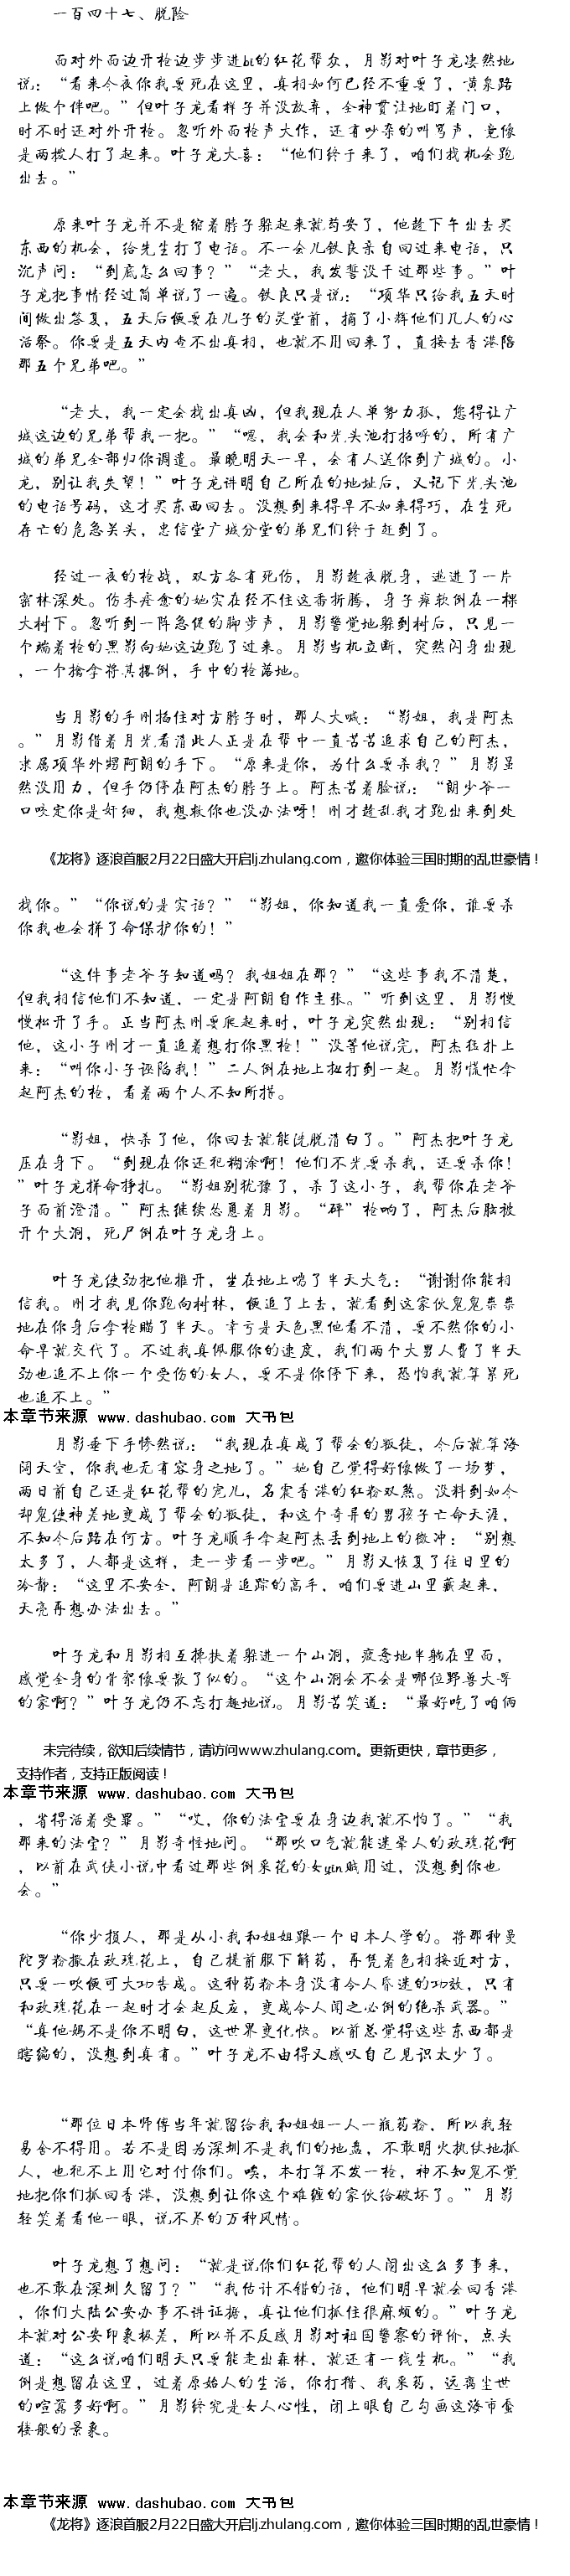 一百四十七、脱险
面对外面边开枪边步步进bī的红花帮众，月影对叶子龙凄然地
说：“看来今夜你我要死在这里，真相如何已经不重要了，黄泉路
上做个伴吧。”但叶子龙看样子并没放弃，全神贯注地盯着门口，
时不时还对外开枪。忽听外面枪声大作，还有吵杂的叫骂声，竟像
是两拨人打了起来。叶子龙大喜：“他们终于来了，咱们找机会跑
出去。”
原来叶子龙并不是缩着脖子躲起来就苟安了，他趁下午出去买
东西的机会，给先生打了电话。不一会儿铁良亲自回过来电话，只
沉声问：“到底怎么回事？”“老大，我发誓没干过那些事。”叶
子龙把事情经过简单说了一遍。铁良只是说：“项华只给我五天时
间做出答复，五天后便要在儿子的灵堂前，摘了小辉他们几人的心
活祭。你要是五天内查不出真相，也就不用回来了，直接去香港陪
那五个兄弟吧。”
“老大，我一定会找出真凶，但我现在人单势力孤，您得让广
城这边的兄弟帮我一把。”“嗯，我会和光头池打招呼的，所有广
城的弟兄全部归你调遣。最晚明天一早，会有人送你到广城的。小
龙，别让我失望！”叶子龙讲明自己所在的地址后，又记下光头池
的电话号码，这才买东西回去。没想到来得早不如来得巧，在生死
存亡的危急关头，忠信堂广城分堂的弟兄们终于赶到了。
经过一夜的枪战，双方各有死伤，月影趁夜脱身，逃进了一片
密林深处。伤未痊愈的她实在经不住这番折腾，身子瘫软倒在一棵
大树下。忽听到一阵急促的脚步声，月影警觉地躲到树后，只见一
个端着枪的黑影向她这边跑了过来。月影当机立断，突然闪身出现
，一个擒拿将其撂倒，手中的枪落地。
当月影的手刚掐住对方脖子时，那人大喊：“影姐，我是阿杰
。”月影借着月光看清此人正是在帮中一直苦苦追求自己的阿杰，
隶属项华外甥阿朗的手下。“原来是你，为什么要杀我？”月影虽
然没用力，但手仍停在阿杰的脖子上。阿杰苦着脸说：“朗少爷一
口咬定你是奸细，我想救你也没办法呀！刚才趁乱我才跑出来到处
《龙将》逐浪首服2月22日盛大开启lj.zhulang.com，邀你体验三国时期的乱世豪情！
找你。”“你说的是实话？”“影姐，你知道我一直爱你，谁要杀
你我也会拼了命保护你的！”
“这件事老爷子知道吗？我姐姐在那？”“这些事我不清楚，
但我相信他们不知道，一定是阿朗自作主张。”听到这里，月影慢
慢松开了手。正当阿杰刚要爬起来时，叶子龙突然出现：“别相信
他，这小子刚才一直追着想打你黑枪！”没等他说完，阿杰猛扑上
来：“叫你小子诬陷我！”二人倒在地上扭打到一起。月影慌忙拿
起阿杰的枪，看着两个人不知所措。
“影姐，快杀了他，你回去就能洗脱清白了。”阿杰把叶子龙
压在身下。“到现在你还犯糊涂啊！他们不光要杀我，还要杀你！
”叶子龙拼命挣扎。“影姐别犹豫了，杀了这小子，我帮你在老爷
子面前澄清。”阿杰继续怂恿着月影。“砰”枪响了，阿杰后脑被
开个大洞，死尸倒在叶子龙身上。
叶子龙使劲把他推开，坐在地上喘了半天大气：“谢谢你能相
信我。刚才我见你跑向树林，便追了上去，就看到这家伙鬼鬼祟祟
地在你身后拿枪瞄了半天。幸亏是天色黑他看不清，要不然你的小
命早就交代了。不过我真佩服你的速度，我们两个大男人费了半天
劲也追不上你一个受伤的女人，要不是你停下来，恐怕我就算累死
也追不上。”
本章节来源 www.dashubao.com 大书包
月影垂下手惨然说：“我现在真成了帮会的叛徒，今后就算海
阔天空，你我也无有容身之地了。”她自己觉得好像做了一场梦，
两日前自己还是红花帮的宠儿，名震香港的红粉双煞。没料到如今
却鬼使神差地变成了帮会的叛徒，和这个奇异的男孩子亡命天涯，
不知今后路在何方。叶子龙顺手拿起阿杰丢到地上的微冲：“别想
太多了，人都是这样，走一步看一步吧。”月影又恢复了往日里的
冷静：“这里不安全，阿朗是追踪的高手，咱们要进山里藏起来，
天亮再想办法出去。”
叶子龙和月影相互搀扶着躲进一个山洞，疲惫地半躺在里面，
感觉全身的骨架像要散了似的。“这个山洞会不会是哪位野兽大哥
的家啊？”叶子龙仍不忘打趣地说。月影苦笑道：“最好吃了咱俩
未完待续，欲知后续情节，请访问www.zhulang.com。更新更快，章节更多，
支持作者，支持正版阅读！
本章节来源 www.dashubao.com 大书包
，省得活着受罪。”“哎，你的法宝要在身边我就不怕了。”“我
那来的法宝？”月影奇怪地问。“那吹口气就能迷晕人的玫瑰花啊
，以前在武侠小说中看过那些倒采花的女yín贼用过，没想到你也
会。”
“你少损人，那是从小我和姐姐跟一个日本人学的。将那种曼
陀罗粉撒在玫瑰花上，自己提前服下解药，再凭着色相接近对方，
只要一吹便可大功告成。这种药粉本身没有令人昏迷的功效，只有
和玫瑰花在一起时才会起反应，变成令人闻之必倒的绝杀武器。”
“真他妈不是你不明白，这世界变化快。以前总觉得这些东西都是
瞎编的，没想到真有。”叶子龙不由得又感叹自己见识太少了。
“那位日本师傅当年就留给我和姐姐一人一瓶药粉，所以我轻
易舍不得用。若不是因为深圳不是我们的地盘，不敢明火执仗地抓
人，也犯不上用它对付你们。唉，本打算不发一枪，神不知鬼不觉
地把你们抓回香港，没想到让你这个难缠的家伙给破坏了。”月影
轻笑着看他一眼，说不尽的万种风情。
叶子龙想了想问：“就是说你们红花帮的人闹出这么多事来，
也不敢在深圳久留了？”“我估计不错的话，他们明早就会回香港
，你们大陆公安办事不讲证据，真让他们抓住很麻烦的。”叶子龙
本就对公安印象极差，所以并不反感月影对祖国警察的评价，点头
道：“这么说咱们明天只要能走出森林，就还有一线生机。”“我
倒是想留在这里，过着原始人的生活，你打猎、我采药，远离尘世
的喧嚣多好啊。”月影终究是女人心性，闭上眼自己勾画这海市蜃
楼般的景象。
本章节来源 www.dashubao.com 大书包
《龙将》逐浪首服2月22日盛大开启lj.zhulang.com，邀你体验三国时期的乱世豪情！